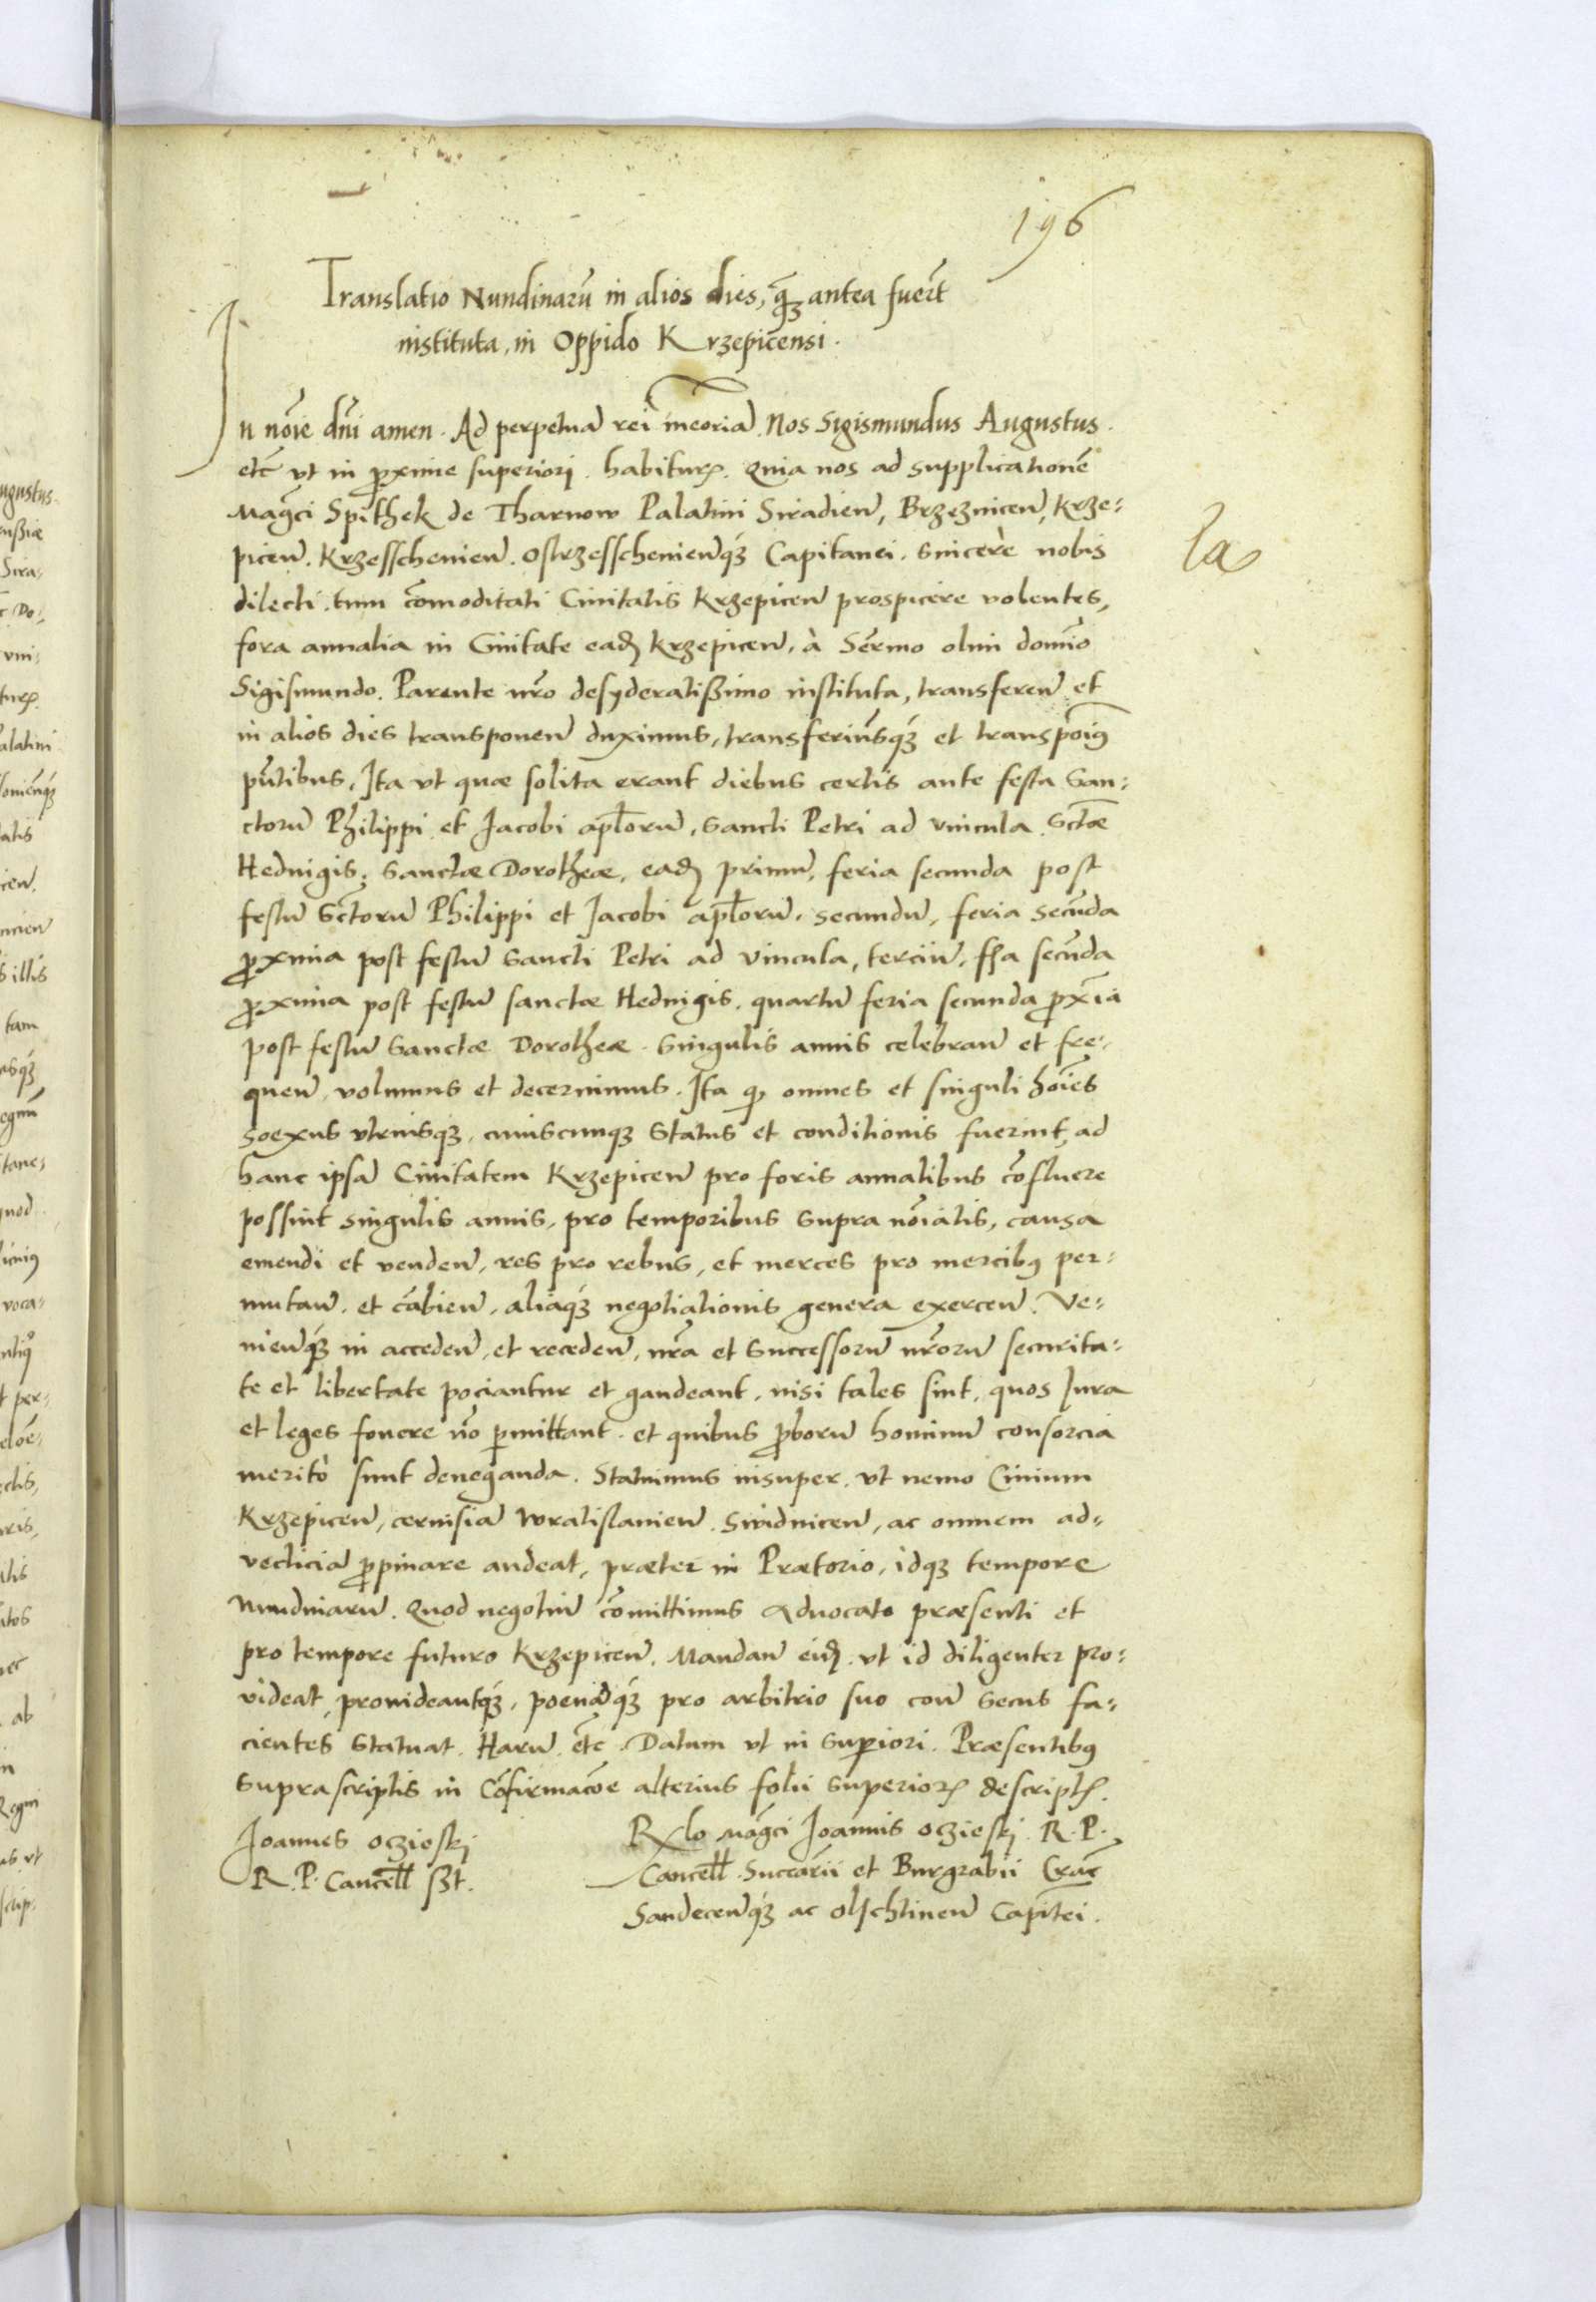 196
Translatio Nundinarū in alios dies, q̄ȝ antea fuer̄t
instituta, in Oppido Krzepicensi.
In noīe dn̄i amen. Ad perpetuā rei meoriā. Nos Sigismundus Augustus.
etc̄ vt in proxime superiori habitur. Quia nos ad supplicationē
Mag̃ci Spithek de Tharnow Palatini Siradien̄, Brzeznicen̄, Krze-
picen̄. Krzesschenien̄. Ostrzesschenien̄q́ȝ Capitanei. sincerè nobis
dilecti, tum cōmoditati Ciuitatis Krzepicen̄ prospicere volentes,
fora annalia in Ciuitate eadȝ Krzepicen̄, à Ser̄mo olim domīo
Sigismundo. Parente nr̄o desyderatißimo instituta, transferen̄ et
in alios dies transponen̄ duximus, transferim̄sq́ȝ et transpōim9
pn̄tibus, Ita vt quæ solita erant diebus certis ante festa San-
ctorū Philippi et Jacobi apl̄orū, Sancti Petri ad vincula Sctæ
Heduigis, Sanctæ Dorotheæ, eadȝ primū, feria secunda post
festū Sctorū Philippi et Jacobi apl̄orū. secundū, feria secūda
proxima post festū Sancti Petri ad vincula, terciū, fr̄a secūda
proxima post festū sanctæ Heduigis. quartū feria secunda prox̄ia
post festū Sanctæ Dorotheæ. Singulis annis celebran̄ et fre-
quen̄ volumus et decernimus. Ita qȝ omnes et singuli hoīes
soexus vtriusqȝ, cuiuscunqȝ status et conditionis fuerint, ad
hanc ipsā Ciuitatem Krzepicen̄ pro foris annalibus cōfluere
possint singulis annis, pro temporibus supra noīatis, causa
emendi et venden̄, res pro rebus, et merces pro mercib9 per-
mutan̄. et cābien̄, aliaq́ȝ negotiationis genera exercen̄. Ve-
nien̄q́ȝ in acceden̄, et receden̄, nr̄a et Successorū nr̄orū securita-
te et libertate pociantur et gaudeant, nisi tales sint, quos Jura
et leges fouere nō permittant. et quibus proborū hominū consorcia
meritò sunt deneganda. Statuimus insuper, vt nemo Ciuium
Krzepicen̄, ceruisiā Wratislauien̄. Swidnicen̄, ac omnem ad-
vecticiā propinare audeat, præter in Prætorio, idqȝ tempore
Nundinarū. Quod negotiū cōmittimus Aduocato præsenti et
pro tempore futuro Krzepicen̄. Mandan̄ eidȝ vt id diligenter pro-
videat, prouideantq́ȝ, poenāq́ȝ pro arbitrio suo con̄ secus fa-
cientes statuat. Harū etc̄. Datum vt in superiori. Præsentib9
suprascriptis in Cōfirmacōe alterius folii superior descript.
Joannes Oczieskj
R. P. Cancell̄ sßt.
Rlo Mag̃ci Joannis Oczieskj. R. P.
Cancell̄ Succarii et Burgrabii Crac̄
Sandecen̄q́ȝ ac Olschtinen̄ Capitei.